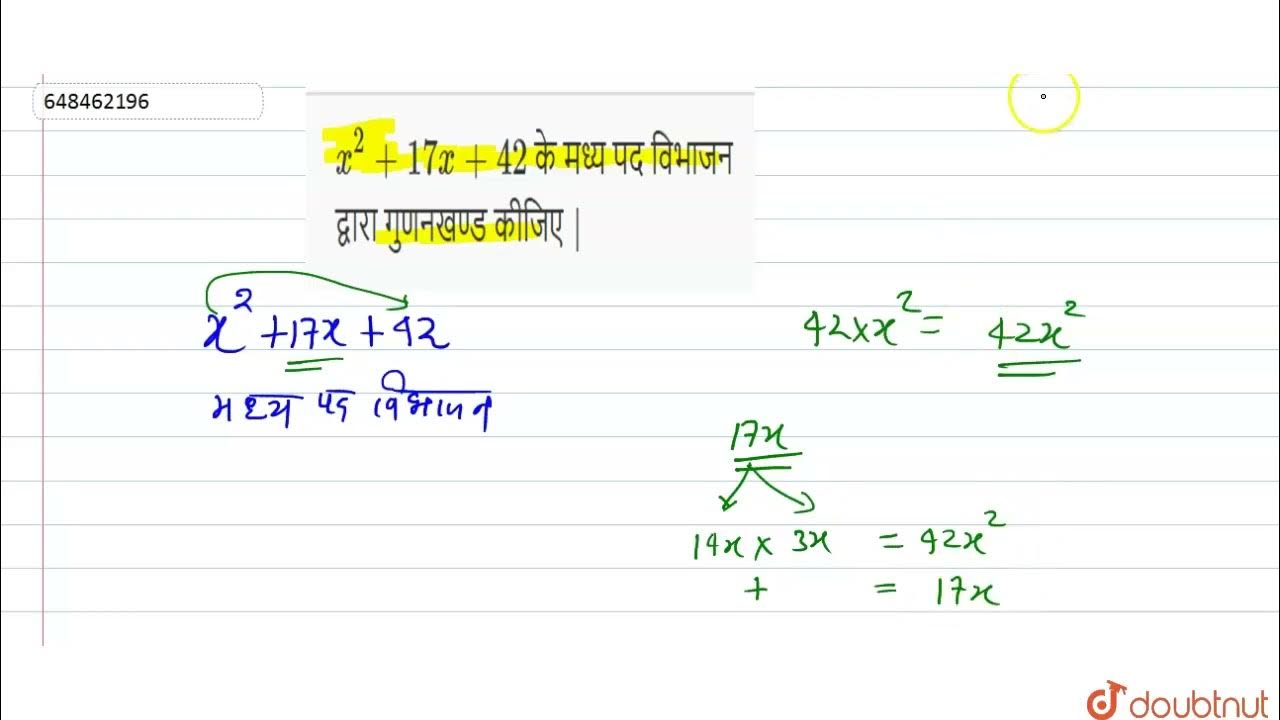 648462196
x² + 17x + 42 के मध्य पद विभाजन
द्वारा गुणनखण्ड कीजिए |
x² + 17x + 42
मध्य पद विभाजन
42 × x² = 42x²
17x
14x × 3x = 42x²
+ = 17x
doubtnut